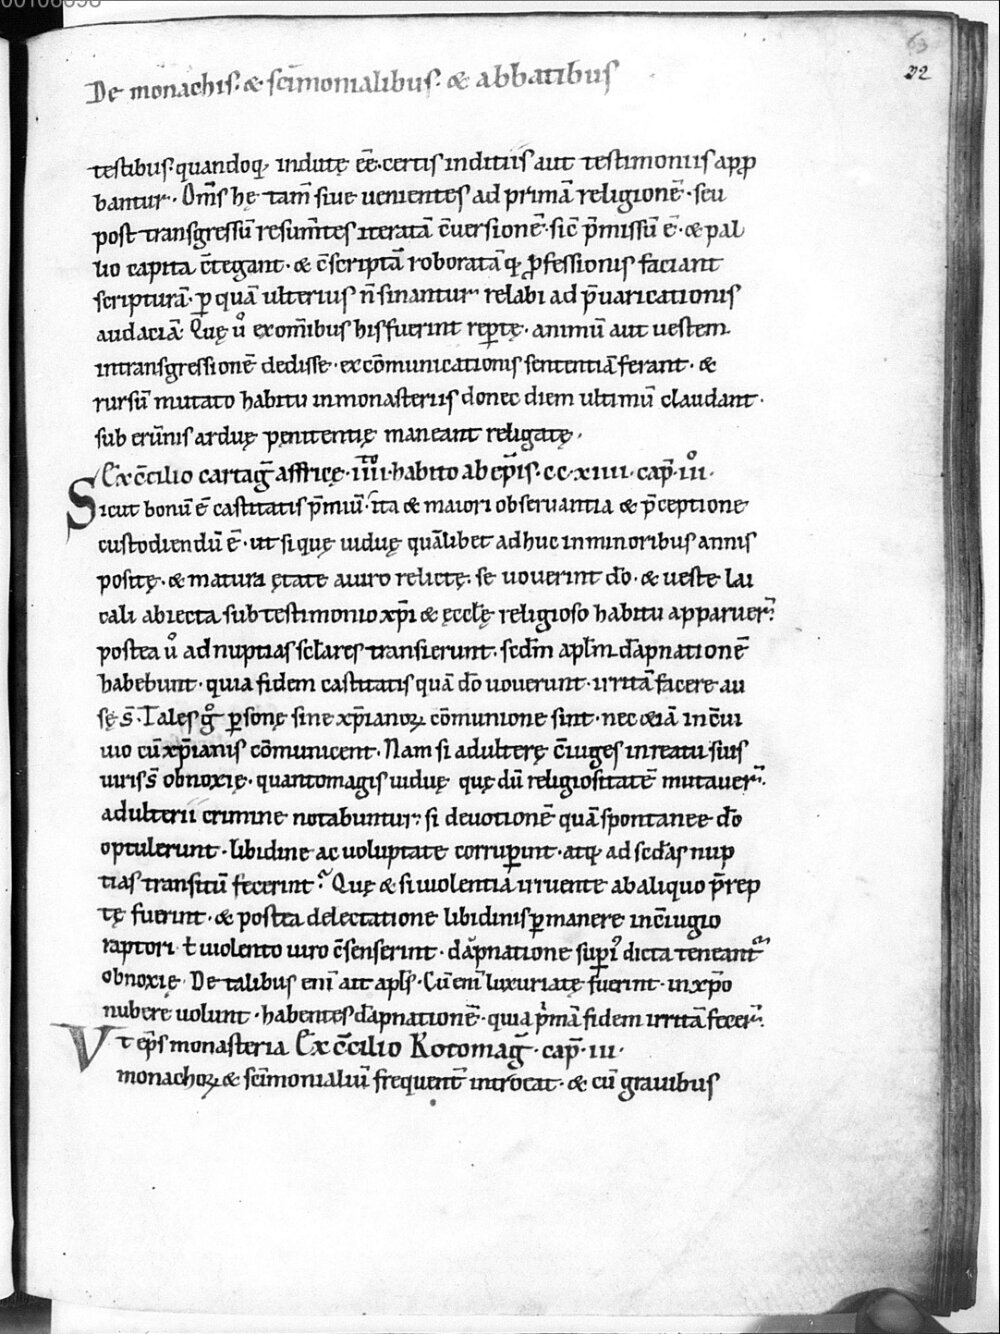 00106098
63
22
De monachis· & sc̄imonialibus· & abbatibus
testibus· quandoq; indutę ēē· certis inditiis aut testimoniis app̱
bantur· Om̄s hę tam̄ siue uenientes ad primā religionē· seu
post transgressū resum̄tes iteratā c̄uersionē· sic̄ p̄missū ē· & pal
lio capita c̄tegant· & c̄scriptā roboratā q; ꝓfessionis faciant
scripturā· ꝑ quā ulterius n̄ sinantur relabi ad p̄uaricationis
audaciā· Quę ů ex om̄ibus his fuerint reꝑtę· animū aut uestem
in transgressionē dedisse· excōmunicationis sententiā ferant· &
rursū mutato habitu in monasteriis donec diem ultimū claudant·
sub erūnis arduę penitentię maneant religatę·
Ex c̄cilio cartag̅ affricę· iiii̊· habito ab ep̄is· cc·xiiii· cap̄· iiii̊·
Sicut bonū ē castitatis p̄miū· ita & maiori obseruantia & p̄ceptione
custodiendū ē· ut si quę uiduę quālibet adhuc in minoribus annis
positę· & matura ętate a uiro relictę· se uouerint dō· & ueste lai
cali abiecta sub testimonio xp̄i & ęccl̄ę religioso habitu apparuer̄·
postea ů ad nuptias sclāres transierunt· scdm̄ apl̄m dāpnationē
habebunt· quia fidem castitatis quā dō uouerunt· irritā facere au
sę s̄· Tales g̊ ꝑsonę sine xp̄ianoꝝ cōmunione sint· nec &iā in c̄ui
uio cū xp̄ianis cōmunicent· Nam si adulterę c̄iuges in reatu suis
uiris s̄ obnoxię· quantomagis uiduę quę dū religiositatē mutauer̄·
adulterii crimine notabuntur· si deuotionē quā spontanee dō
optulerunt· libidine ac uoluptate corruꝑint· atq; ad scdās nup
tias transitū fecerint· Quę & si uiolentia irruente ab aliquo p̄rep
tę fuerint· & postea delectatione libidinis ꝑmanere in c̄iugio
raptori· ł uiolento uiro c̄senserint· dāpnatione suꝑi dicta teneant̄
obnoxię· De talibus enī ait apl̄s· Cū enī luxuriatę fuerint· in xp̄o
nubere uolunt· habentes dāpnationē· quia p̄mā fidem irritā fecer̄·
Vt ep̄s monasteria Ex c̄cilio Rotomag̅· cap̄· iii·
monachoꝝ & sc̄imonialiū frequent̄ introeat· & cū grauibus